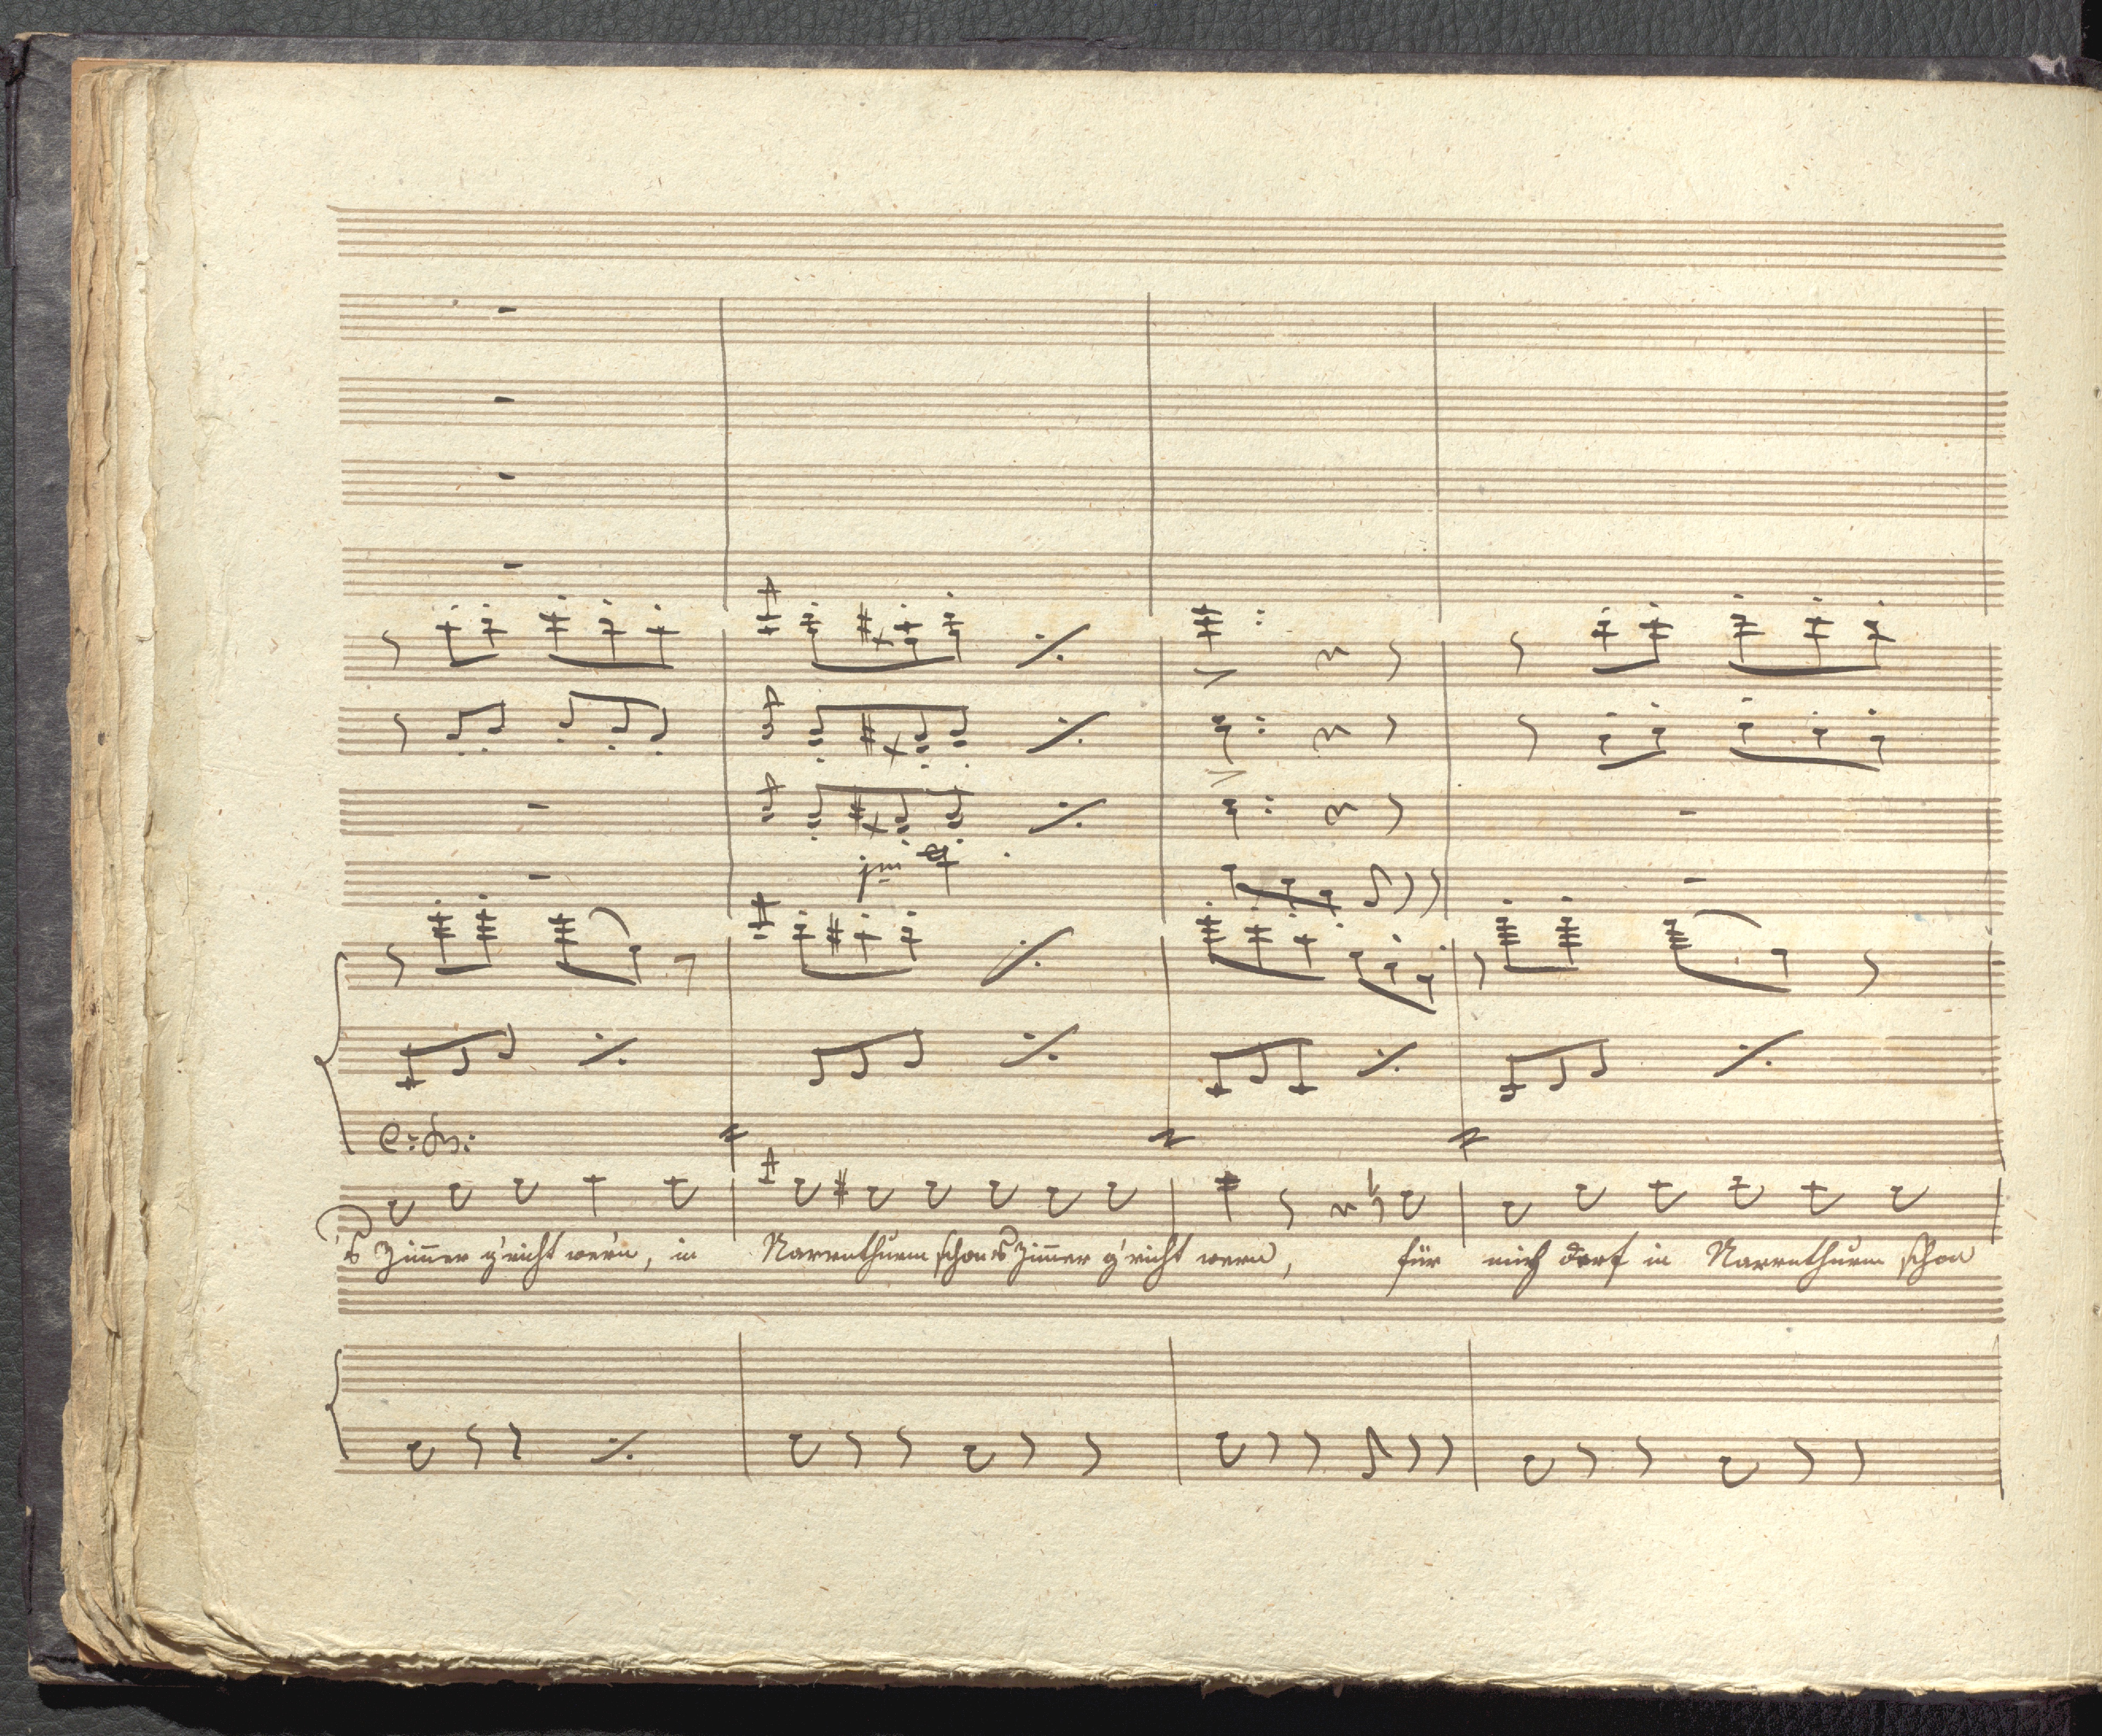 c: Bs:
's Zimmer g'richt wer'n, in Narrenthurm schon 's Zimmer g'richt wern, für mich darf in Narrenthurm schon